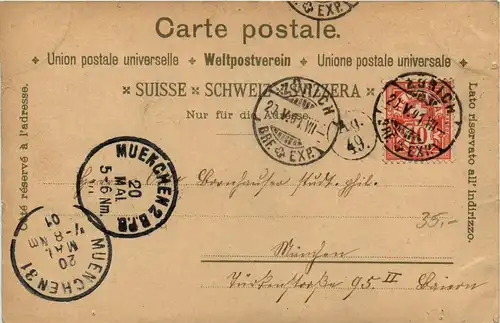 EXP.
Carte postale.
Union postale universelle ✦ Weltpostverein ✦ Unione postale universale
SUISSE SCHWEIZ SVIZZERA
Nur für die Adresse.
Côté réservé à l'adresse.
Lato riservato all' indirizzo.
ZÜRICH
BRF. EXP.
ZÜRICH
BRF. EXP.
10
49.
MUENCHEN 2 B.P.B.
20
MAI
5-6 Nm.
MUENCHEN 31
20
MAI
01
stud. phil.
35,-
München
Türkenstrasse 95 II Baiern